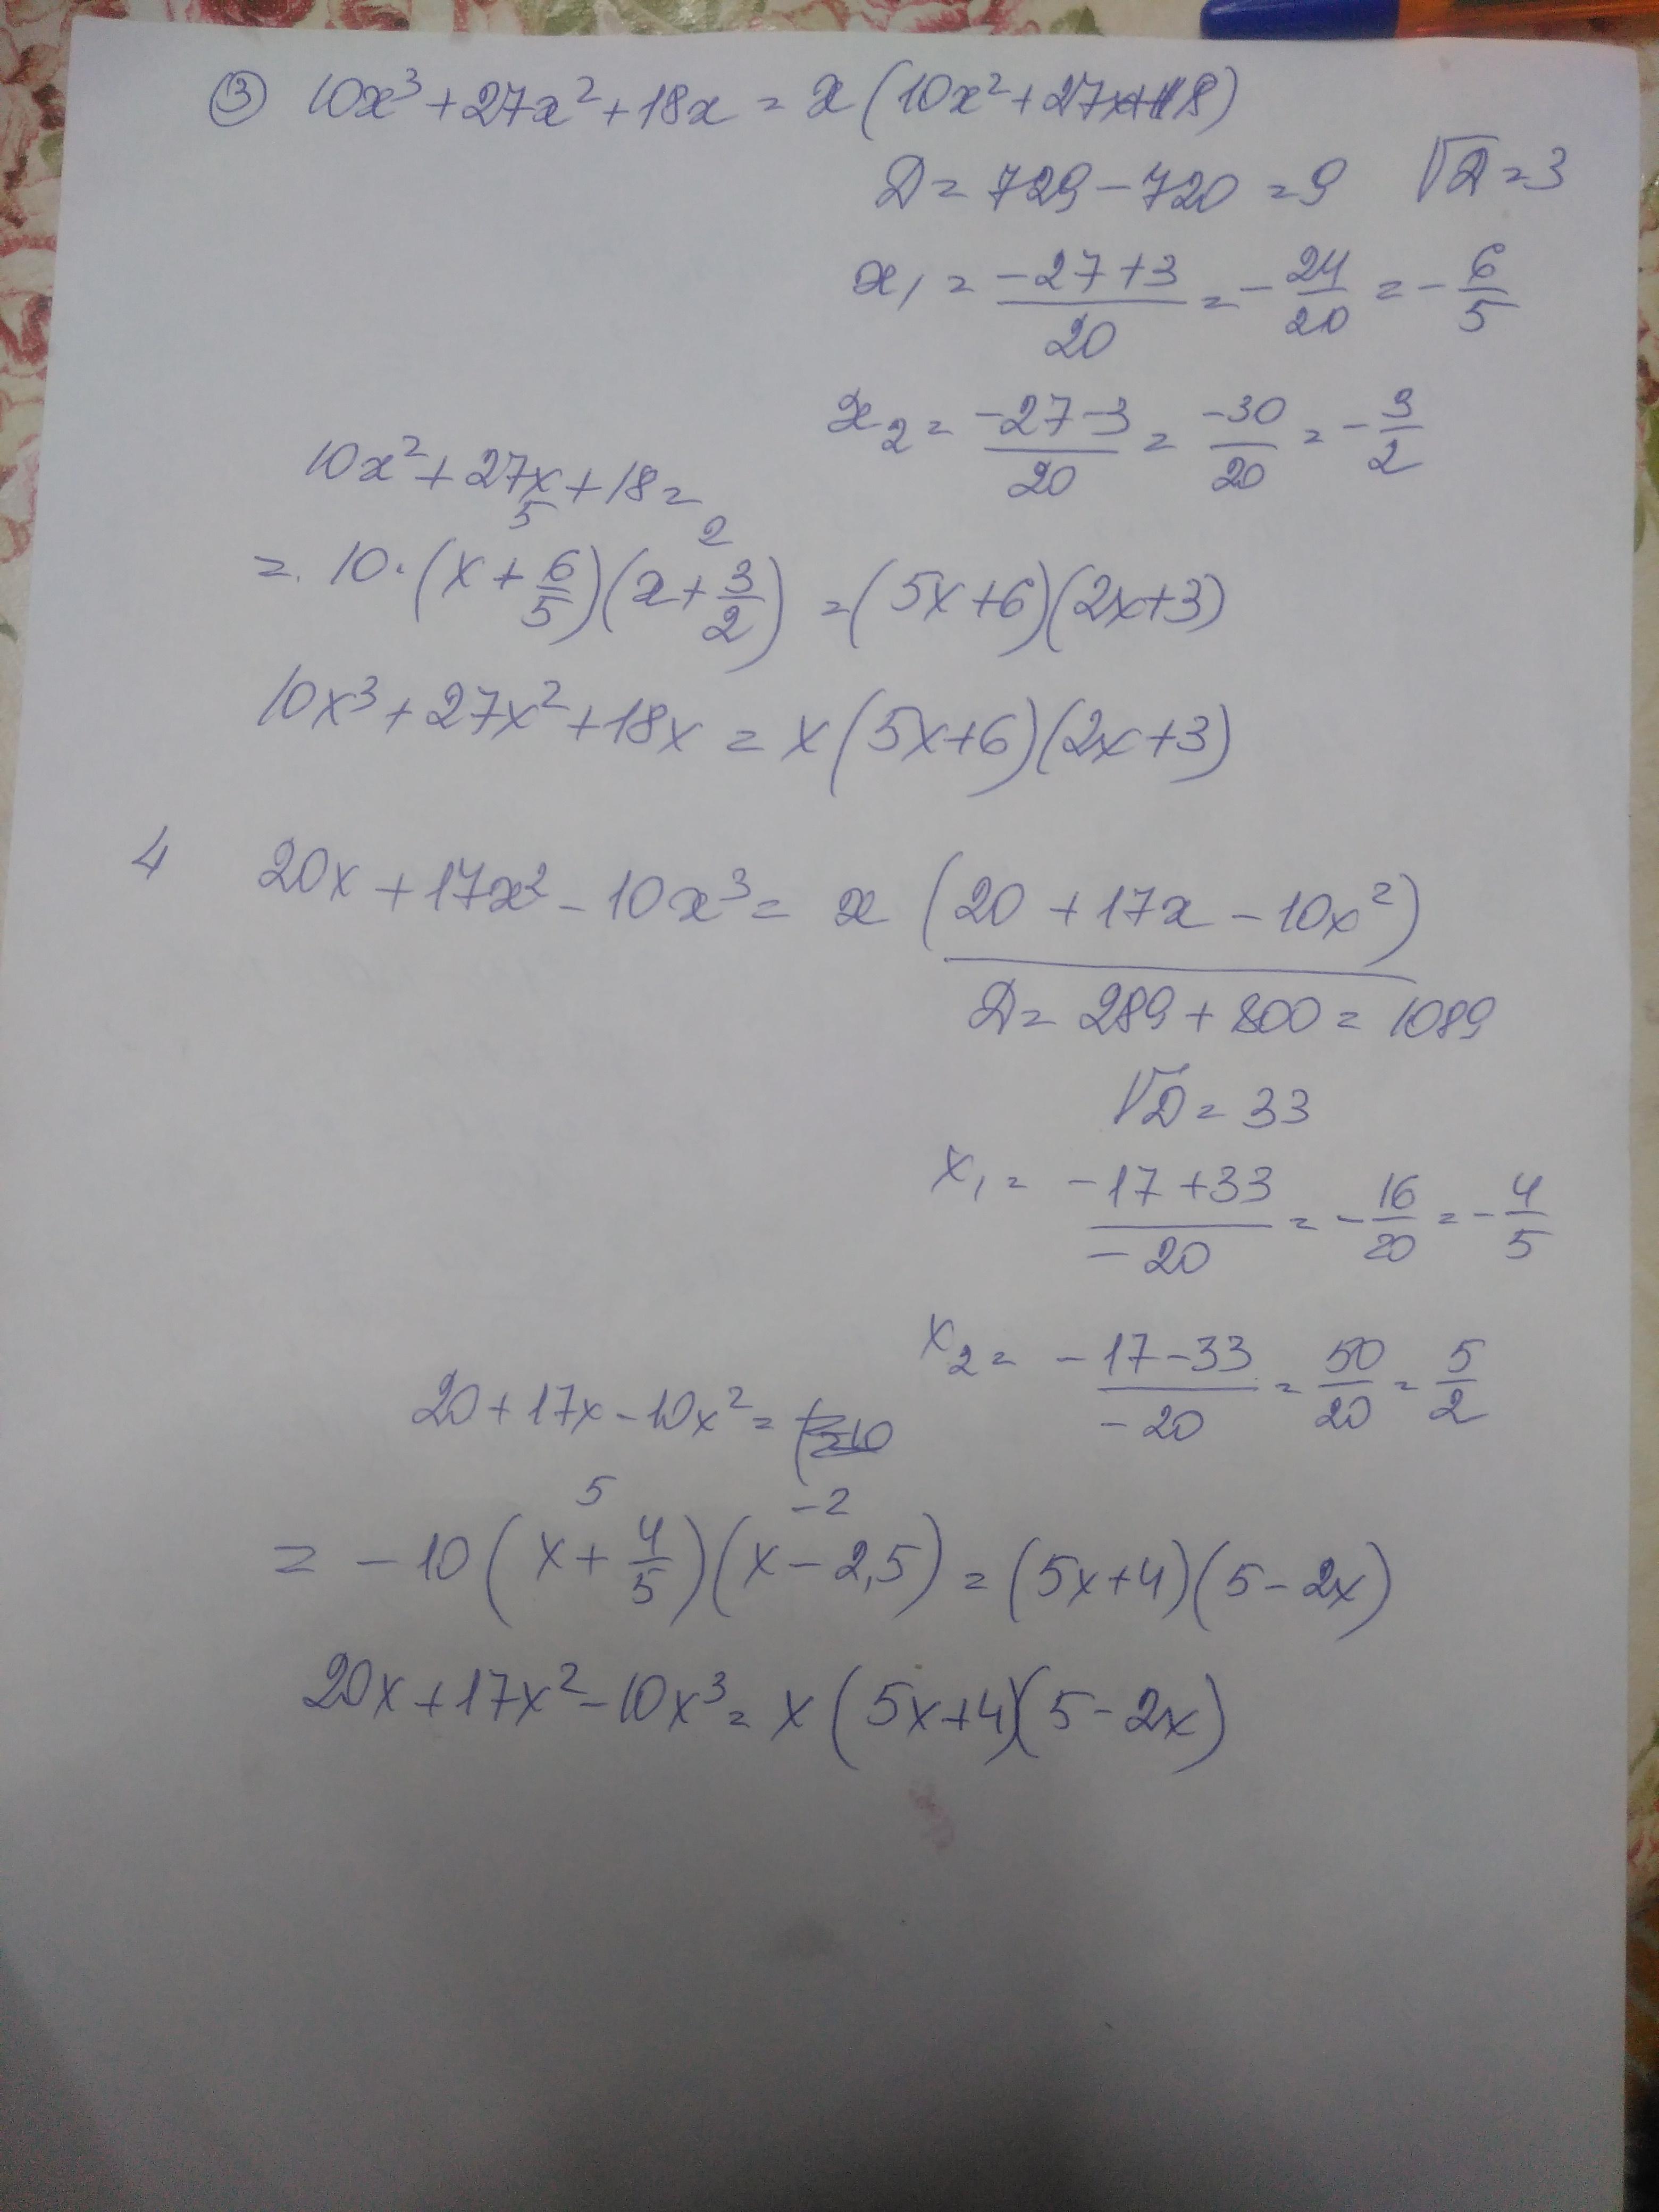 ③ 10x³ + 27x² + 18x = x(10x² + 27x + 18)
D = 729 − 720 = 9 √D = 3
x₁ = (−27 + 3)/20 = −24/20 = −6/5
x₂ = (−27 − 3)/20 = −30/20 = −3/2
10x² + 27x + 18 =
5 2
= 10·(x + 6/5)(x + 3/2) = (5x + 6)(2x + 3)
10x³ + 27x² + 18x = x(5x + 6)(2x + 3)
4 20x + 17x² − 10x³ = x(20 + 17x − 10x²)
D = 289 + 800 = 1089
√D = 33
x₁ = (−17 + 33)/−20 = −16/20 = −4/5
x₂ = (−17 − 33)/−20 = 50/20 = 5/2
20 + 17x − 10x² =
5 −2
= −10(x + 4/5)(x − 2,5) = (5x + 4)(5 − 2x)
20x + 17x² − 10x³ = x(5x + 4)(5 − 2x)